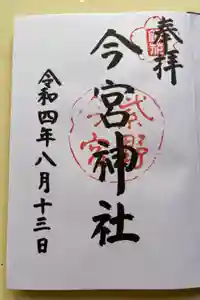 奉拝
今宮神社
令和四年八月十三日